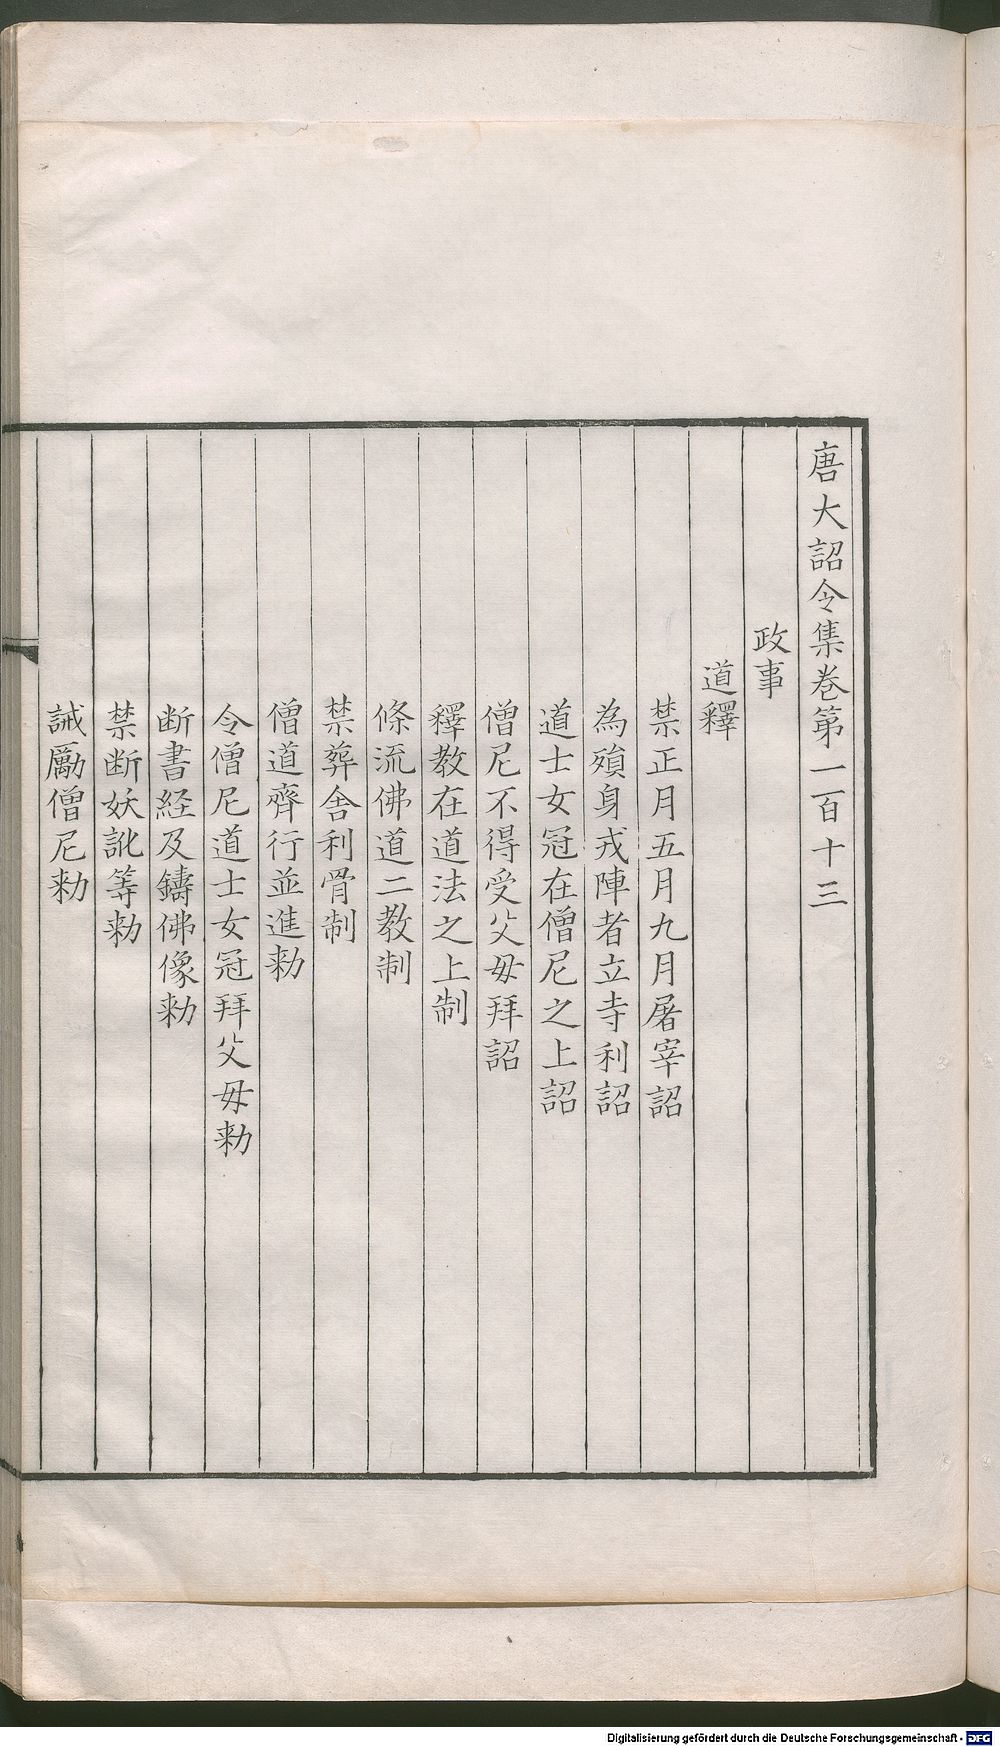 唐大詔令集卷第一百十三
政事
道釋
禁正月五月九月屠宰詔
為殞身戎陣者立寺利詔
道士女冠在僧尼之上詔
僧尼不得受父母拜詔
釋教在道法之上制
條流佛道二教制
禁葬舍利骨制
僧道齊行並進勑
令僧尼道士女冠拜父母勑
断書経及鑄佛像勑
禁断妖訛等勑
誡勵僧尼勑
Digitalisierung gefördert durch die Deutsche Forschungsgemeinschaft - DFG